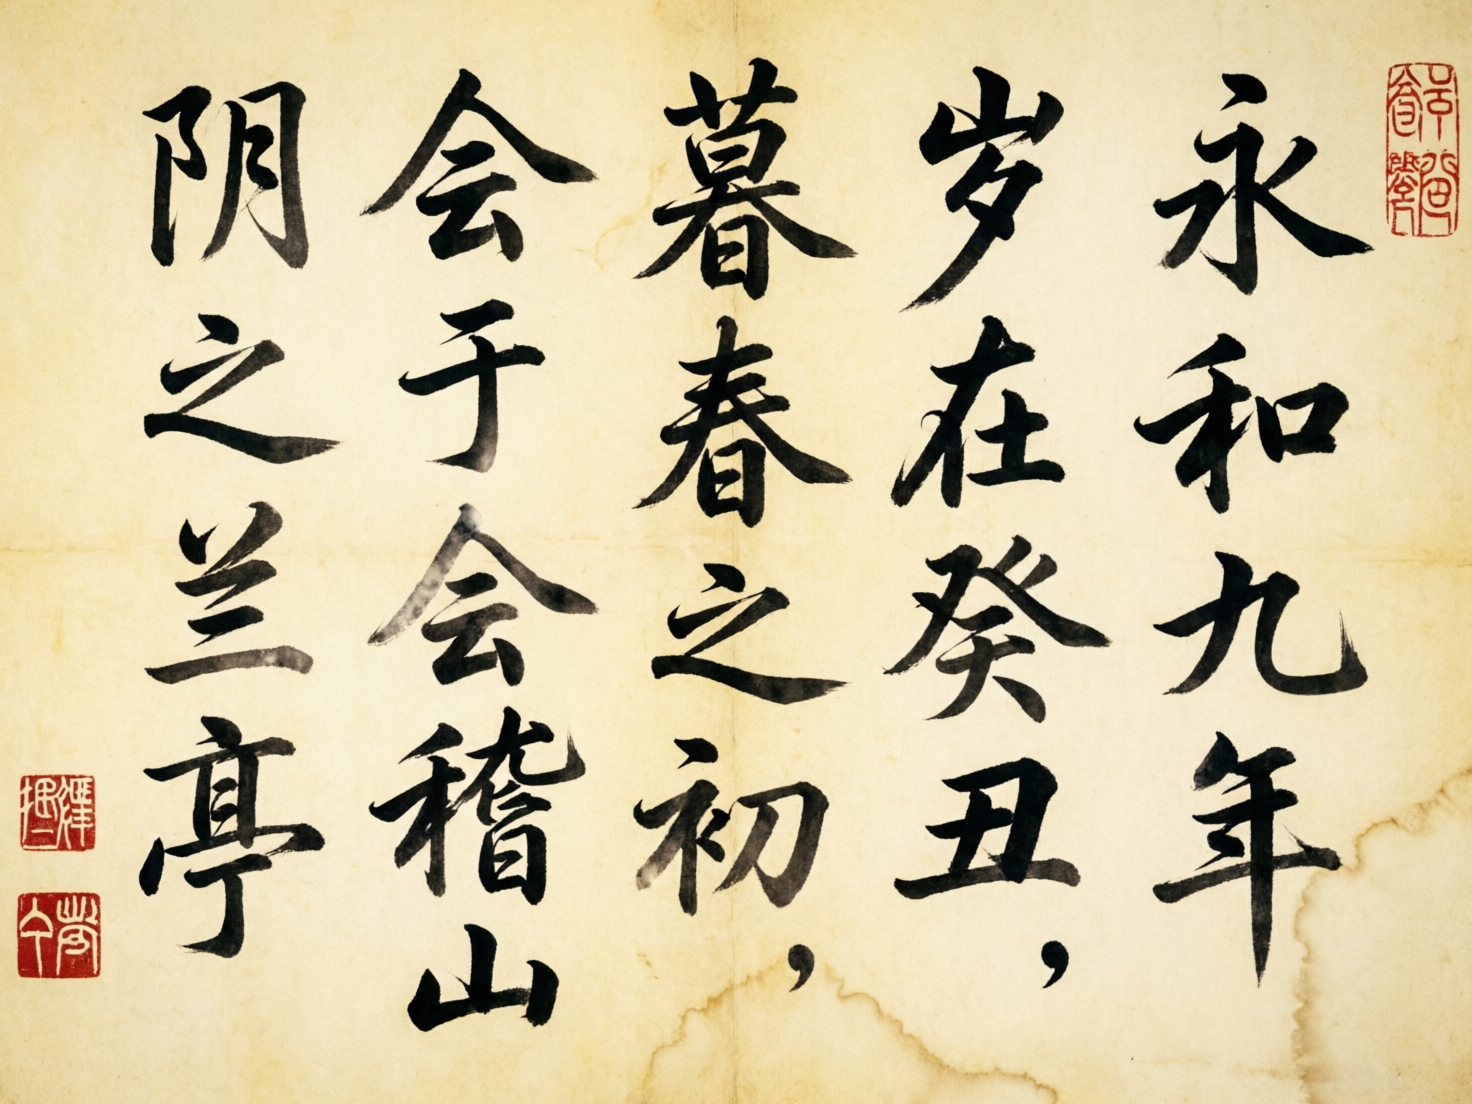 永和九年
岁在癸丑，
暮春之初，
会于会稽山
阴之兰亭